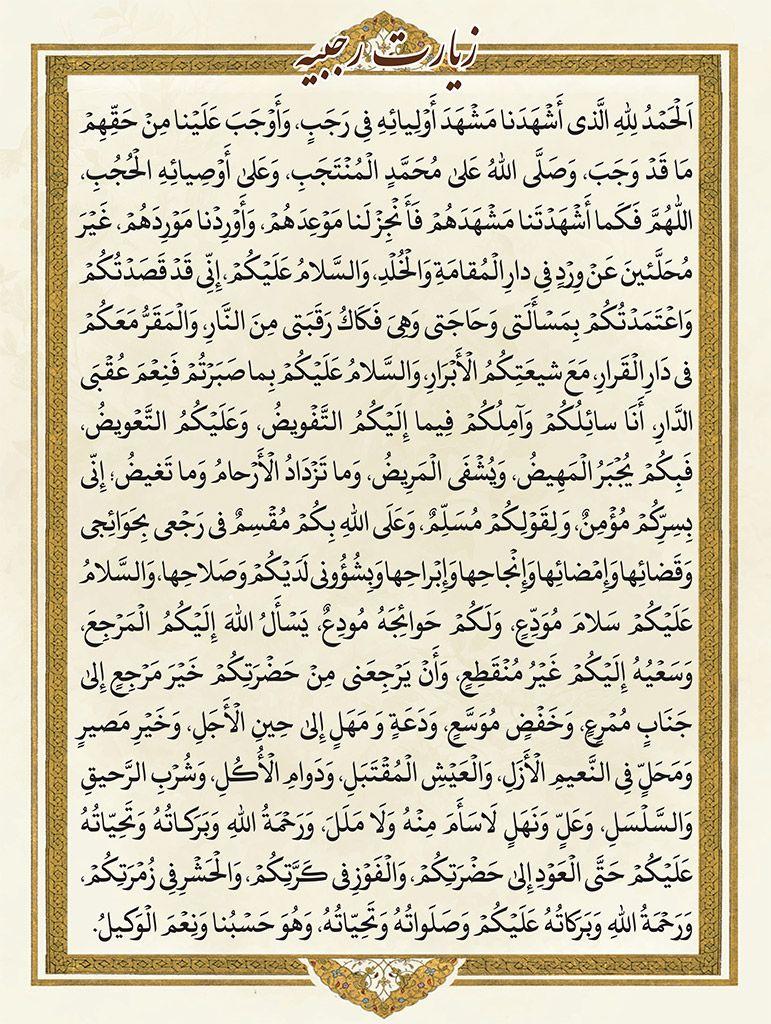 زیارت رجبیه
اَلْحَمْدُ لِلّٰهِ الَّذی أَشْهَدَنا مَشْهَدَ أَوْلِیائِهِ فِی رَجَبٍ، وَأَوْجَبَ عَلَیْنا مِنْ حَقِّهِمْ
مَا قَدْ وَجَبَ، وَصَلَّی اللّٰهُ عَلیٰ مُحَمَّدٍ الْمُنْتَجَبِ، وَعَلیٰ أَوْصِیائِهِ الْحُجُبِ،
اللّٰهُمَّ فَکَما أَشْهَدْتَنا مَشْهَدَهُمْ فَأَنْجِزْ لَنا مَوْعِدَهُمْ، وَأَوْرِدْنا مَوْرِدَهُمْ، غَیْرَ
مُحَلَّئینَ عَنْ وِرْدٍ فِی دارِ الْمُقامَةِ وَالْخُلْدِ، وَالسَّلامُ عَلَیْکُمْ، إِنِّی قَدْ قَصَدْتُکُمْ
وَاعْتَمَدْتُکُمْ بِمَسْأَلَتی وَحَاجَتی وَهِیَ فَکَاکُ رَقَبَتی مِنَ النَّارِ، وَالْمَقَرُّ مَعَکُمْ
فی دَارِ الْقَرارِ، مَعَ شیعَتِکُمُ الْأَبْرَارِ، وَالسَّلامُ عَلَیْکُمْ بِما صَبَرْتُمْ فَنِعْمَ عُقْبَی
الدَّارِ، أَنَا سائِلُکُمْ وَآمِلُکُمْ فِیما إِلَیْکُمُ التَّفْویضُ، وَعَلَیْکُمُ التَّعْویضُ،
فَبِکُمْ یُجْبَرُ الْمَهیضُ، وَیُشْفَی الْمَریضُ، وَما تَزْدَادُ الْأَرْحامُ وَما تَغیضُ؛ إِنِّی
بِسِرِّکُمْ مُؤْمِنٌ، وَلِقَوْلِکُمْ مُسَلِّمٌ، وَعَلَی اللّٰهِ بِکُمْ مُقْسِمٌ فی رَجْعی بِحَوَائِجی
وَقَضائِها وَإِمْضائِها وَإِنْجاحِها وَإِبْراحِها وَبِشُؤُونی لَدَیْکُمْ وَصَلاحِها، وَالسَّلامُ
عَلَیْکُمْ سَلامَ مُوَدِّعٍ، وَلَکُمْ حَوائِجَهُ مُودِعٌ، یَسْأَلُ اللّٰهَ إِلَیْکُمُ الْمَرْجِعَ،
وَسَعْیُهُ إِلَیْکُمْ غَیْرُ مُنْقَطِعٍ، وَأَنْ یَرْجِعَنی مِنْ حَضْرَتِکُمْ خَیْرَ مَرْجِعٍ إِلیٰ
جَنَابٍ مُمْرِعٍ، وَخَفْضٍ مُوَسَّعٍ، وَدَعَةٍ وَ مَهَلٍ إِلیٰ حِینِ الْأَجَلِ، وَخَیْرِ مَصیرٍ
وَمَحَلٍّ فِی النَّعیمِ الْأَزَلِ، وَالْعَیْشِ الْمُقْتَبَلِ، وَدَوامِ الْأُکُلِ، وَشُرْبِ الرَّحیقِ
وَالسَّلْسَلِ، وَعَلٍّ وَنَهَلٍ لَاسَأَمَ مِنْهُ وَلَا مَلَلَ، وَرَحْمَةُ اللّٰهِ وَبَرَکاتُهُ وَتَحِیّاتُهُ
عَلَیْکُمْ حَتَّی الْعَوْدِ إِلیٰ حَضْرَتِکُمْ، وَالْفَوْزِ فی کَرَّتِکُمْ، وَالْحَشْرِ فِی زُمْرَتِکُمْ،
وَرَحْمَةُ اللّٰهِ وَبَرَکاتُهُ عَلَیْکُمْ وَصَلَواتُهُ وَتَحِیّاتُهُ، وَهُوَ حَسْبُنا وَنِعْمَ الْوَکیلُ.